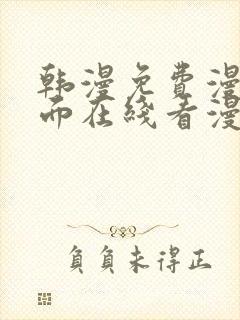 韩漫免费漫
而在线看漫
负负未得正